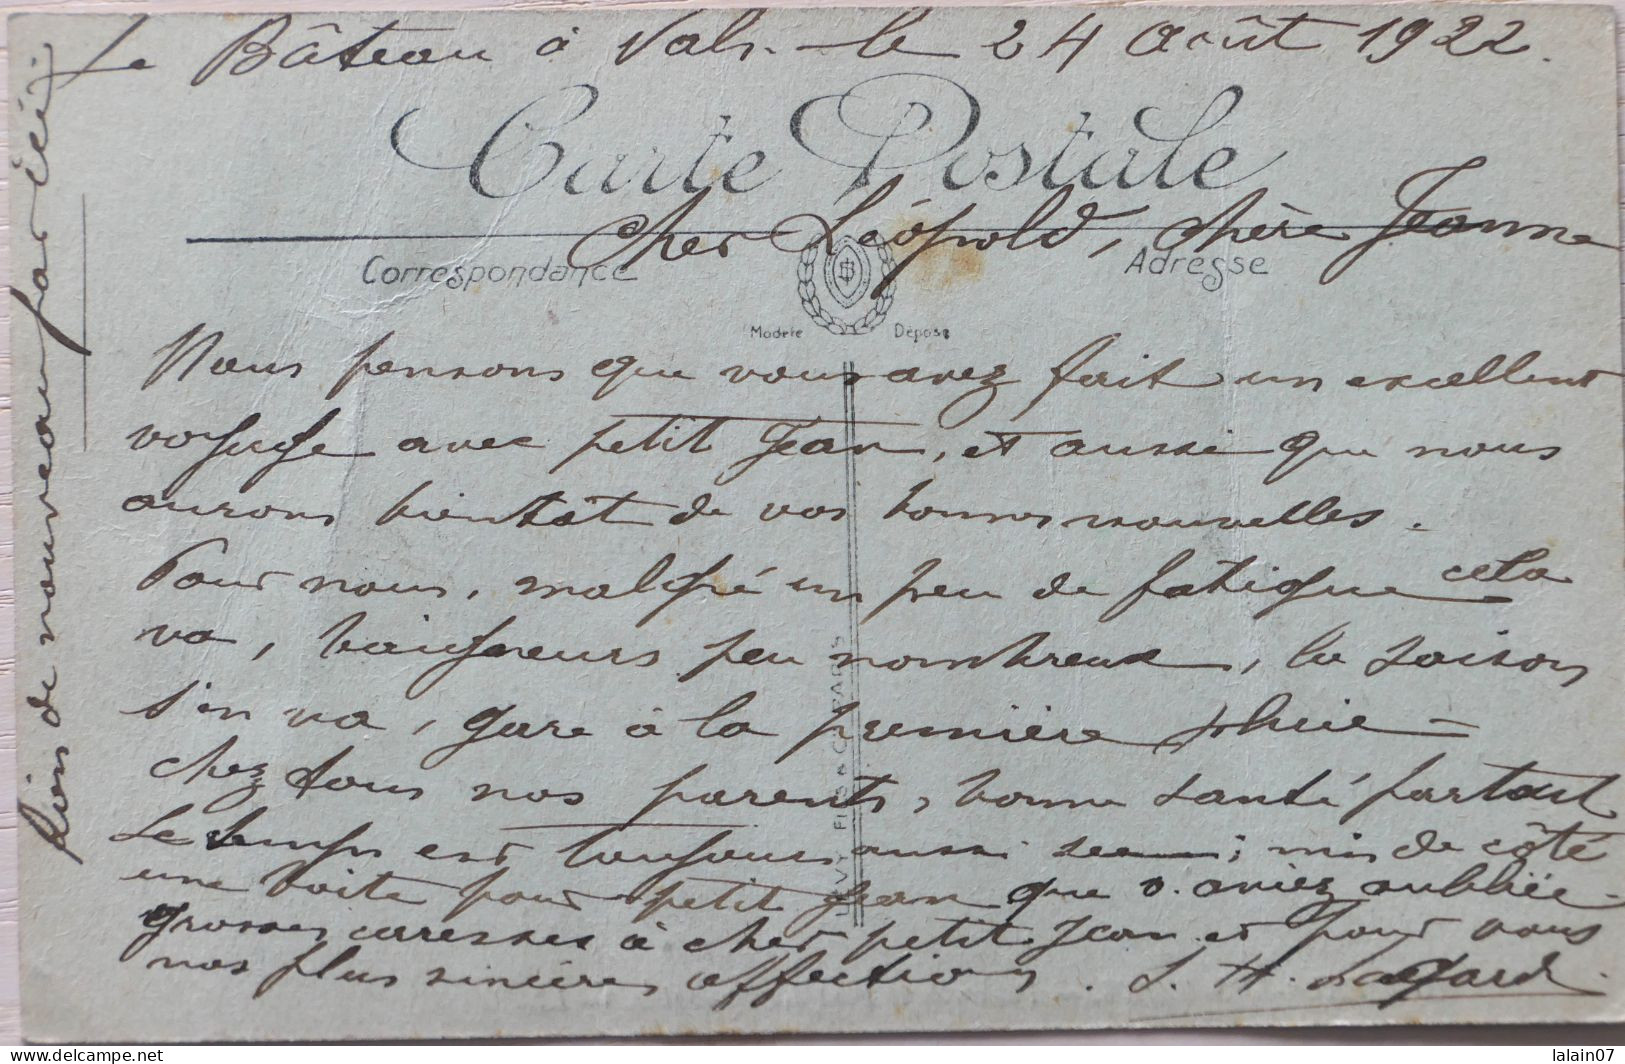 Le Bâteau à Vals - le 24 Août 1922.
Carte Postale
Cher Léopold, chère Jeanne
Correspondance
Adresse
Modèle Déposé
Nous pensons que vous avez fait un excellent
voyage avec petit Jean, et aussi que nous
aurons bientôt de vos bonnes nouvelles.
Pour nous, malgré un peu de fatigue cela
va, baigneurs peu nombreux, la saison
s'en va, gare à la première pluie -
chez tous nos parents, bonne santé partout
Le temps est toujours aussi sec ; mis de côté
une boite pour petit Jean que v. aviez oubliée.
grosses caresses à cher petit Jean et pour vous
nos plus sincères affections. J. H. Lagard.
Rien de nouveau par ici.
LÉVY FILS & Cie PARIS
lalain07